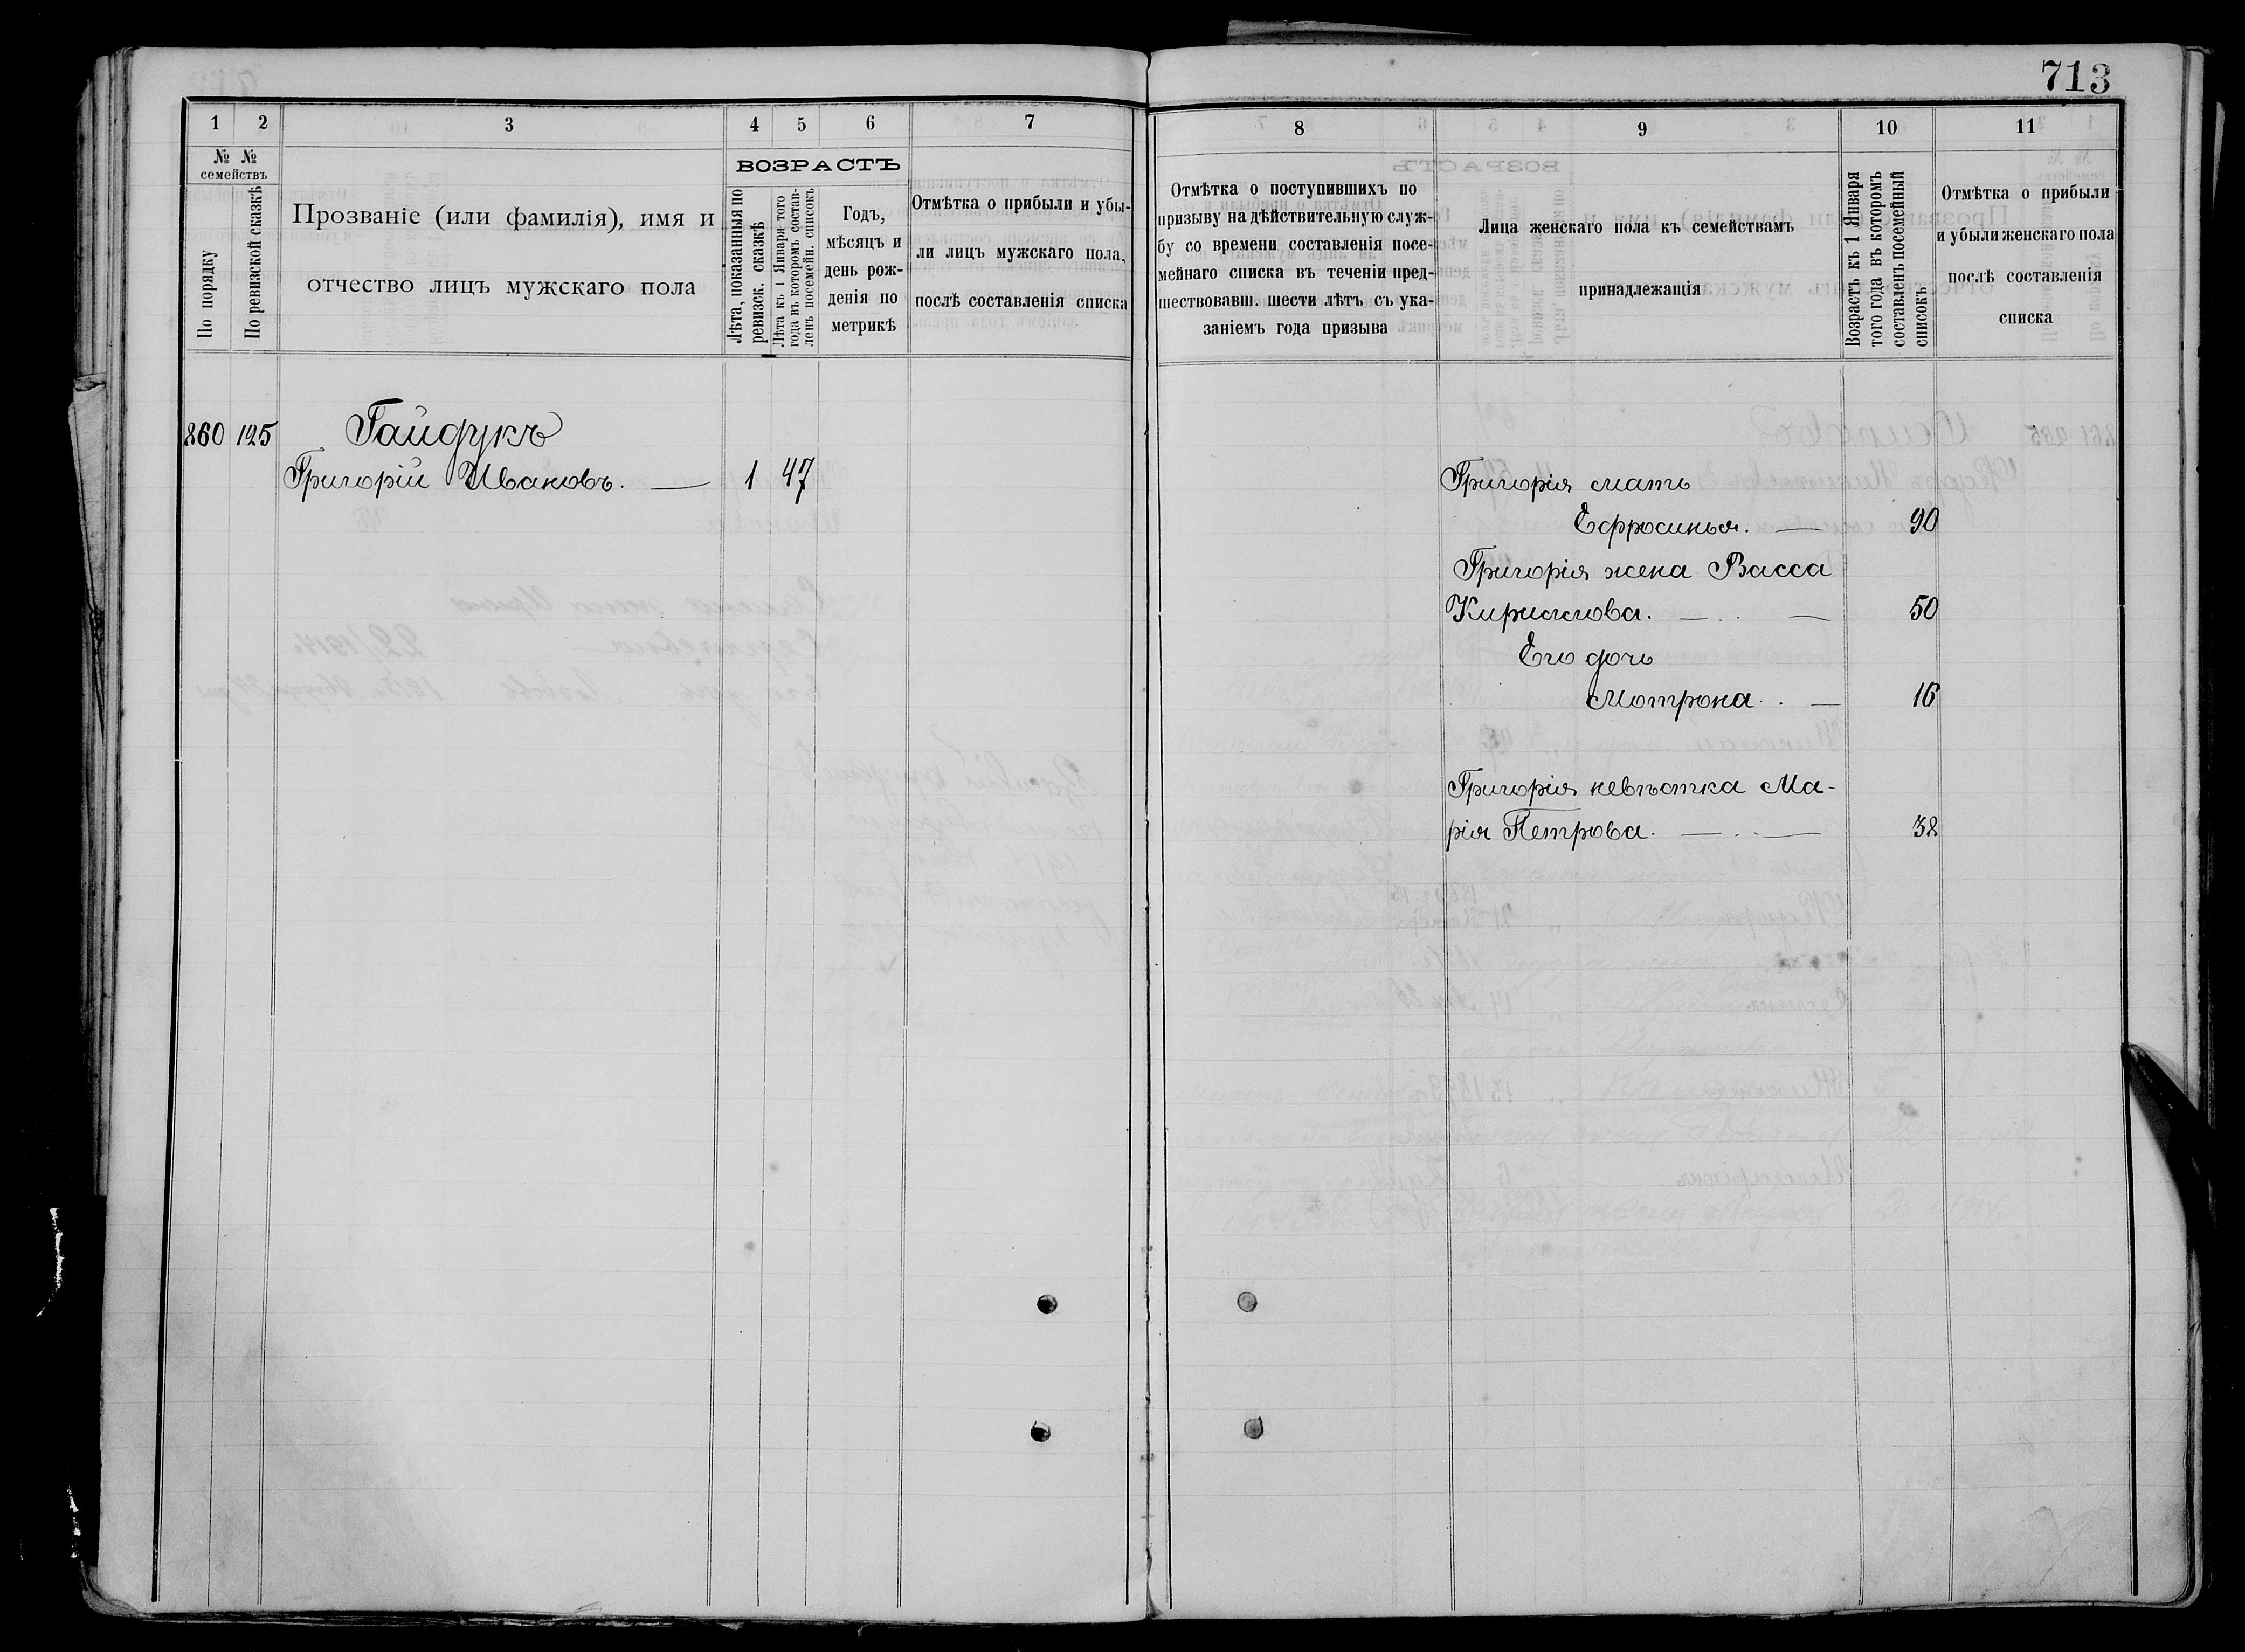 713
1 2 3 4 5 6 7
№ №
семействъ
По порядку
По ревизской сказкѣ
Прозваніе (или фамилія), имя и
отчество лицъ мужскаго пола
ВОЗРАСТЪ
Лѣта, показанныя по
ревизск. сказкѣ
Лѣта къ 1 Января того
года въ которомъ состав-
ленъ посемейн. списокъ
Годъ,
мѣсяцъ и
день рож-
денія по
метрикѣ
Отмѣтка о прибыли и убы-
ли лицъ мужскаго пола,
послѣ составленія списка
860 125 Гайдукъ
Григорій Ивановъ. — 1 47
8 9 10 11
Отмѣтка о поступившихъ по
призыву на дѣйствительную служ-
бу со времени составленія посе-
мейнаго списка въ теченіи пред-
шествовавш. шести лѣтъ съ ука-
заніемъ года призыва
Лица женскаго пола къ семействамъ
принадлежащія
Возрастъ къ 1 Января
того года въ которомъ
составленъ посемейный
списокъ
Отмѣтка о прибыли
и убыли женскаго пола
послѣ составленія
списка
Григорія мать
Ефросинья. — 90
Григорія жена Васса
Кириллова. — 50
Его дочь
Мотрона. — 16
Григорія невѣстка Ма-
рія Петрова. — 38